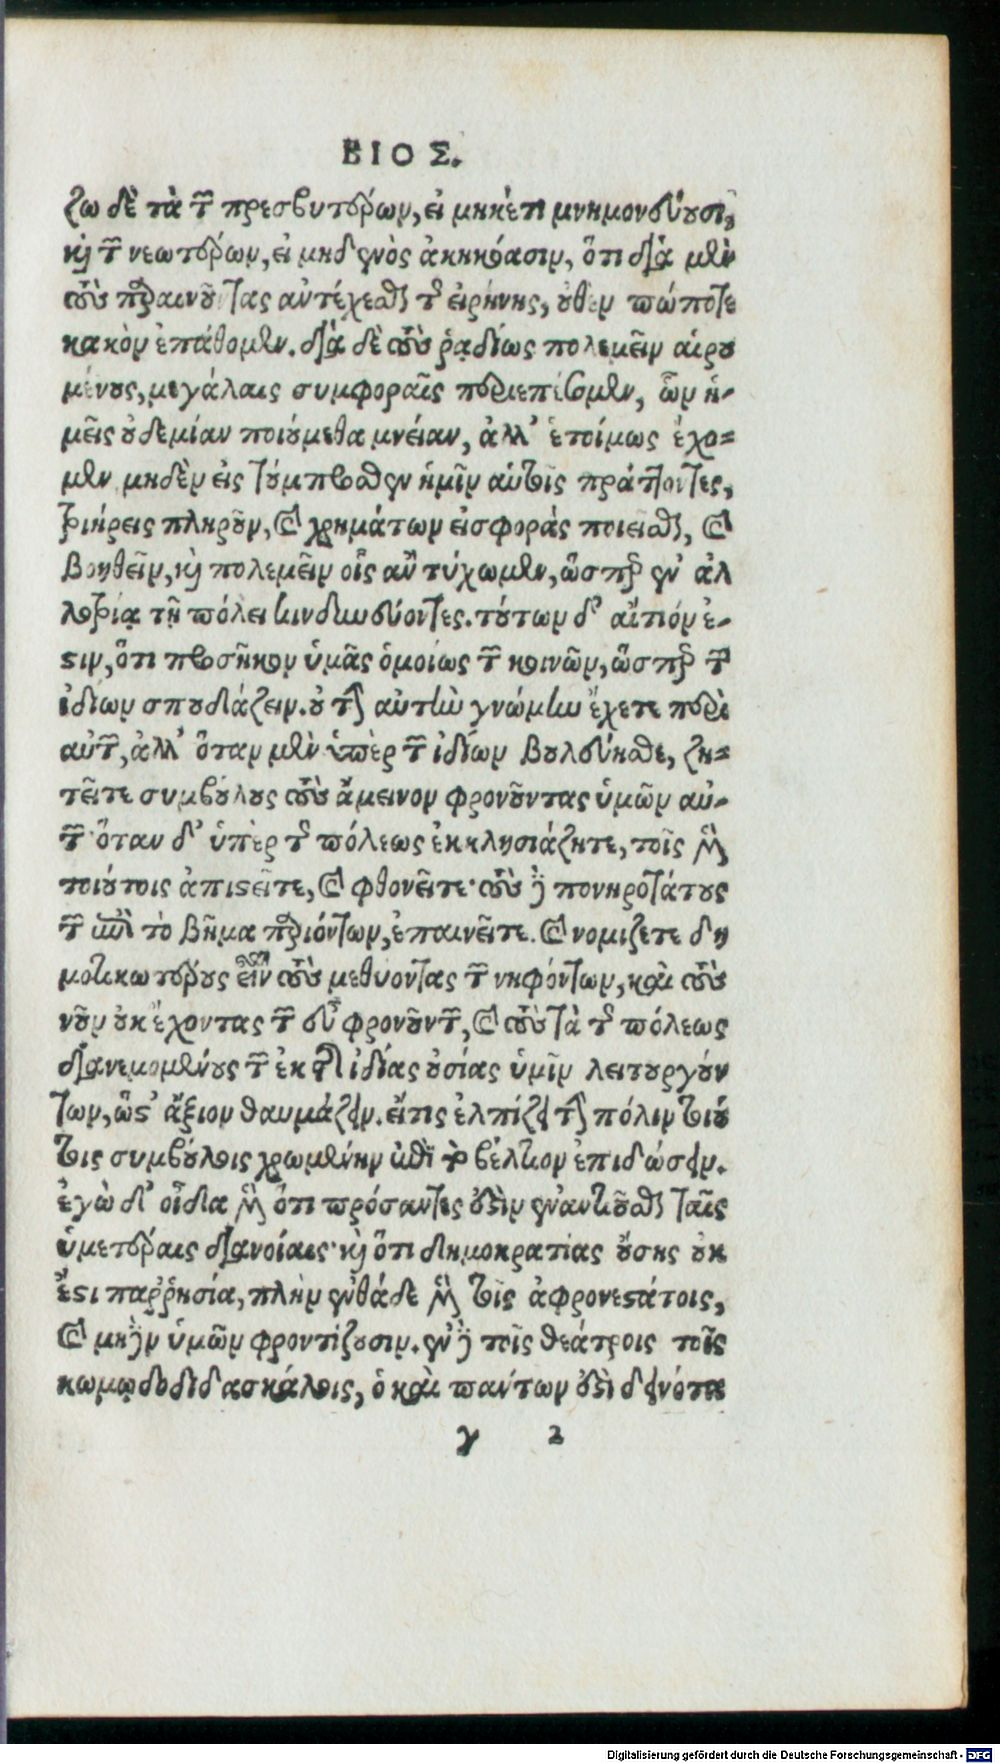 ΒΙΟΣ.
ζω δὲ τὰ τῶν πρεσβυτέρων, εἰ μηκέτι μνημονεύουσι,
καὶ τῶν νεωτέρων, εἰ μηδενὸς ἀκηκόασιν, ὅτι διὰ μὲν
τοὺς παραινοῦντας ἀντέχεσθαι τῆς εἰρήνης, οὐθὲν πώποτε
κακὸν ἐπάθομεν. διὰ δὲ τοὺς ῥᾳδίως πολεμεῖν αἱρου
μένους, μεγάλαις συμφοραῖς περιεπέσομεν, ὧν ἡ-
μεῖς οὐδεμίαν ποιούμεθα μνείαν, ἀλλ' ἑτοίμως ἔχο-
μεν μηδὲν εἰς τοὔμπροσθεν ἡμῖν αὐτοῖς πράττοντες,
τριήρεις πληροῦν, καὶ χρημάτων εἰσφορὰς ποιεῖσθαι, καὶ
βοηθεῖν, καὶ πολεμεῖν οἷς ἂν τύχωμεν, ὥσπερ ἐν ἀλ
λοτρίᾳ τῇ πόλει κινδυνεύοντες. τούτων δ' αἴτιόν ἐ-
στιν, ὅτι προσῆκον ὑμᾶς ὁμοίως τῶν κοινῶν, ὥσπερ τῶν
ἰδίων σπουδάζειν. οὐ τὴν αὐτὴν γνώμην ἔχετε περὶ
αὐτῶν, ἀλλ' ὅταν μὲν ὑπὲρ τῶν ἰδίων βουλεύησθε, ζη-
τεῖτε συμβούλους τοὺς ἄμεινον φρονοῦντας ὑμῶν αὐ-
τῶν· ὅταν δ' ὑπὲρ τῆς πόλεως ἐκκλησιάζητε, τοῖς μὲν
τοιούτοις ἀπιστεῖτε, καὶ φθονεῖτε· τοὺς δὲ πονηροτάτους
τῶν ἐπὶ τὸ βῆμα παριόντων, ἐπαινεῖτε. καὶ νομίζετε δη
μοτικωτέρους εἶναι τοὺς μεθύοντας τῶν νηφόντων, καὶ τοὺς
νοῦν οὐκ ἔχοντας τῶν εὖ φρονούντων, καὶ τοὺς τὰ τῆς πόλεως
διανεμομένους τῶν ἐκ τῆς ἰδίας οὐσίας ὑμῖν λειτουργούν
των, ὥστ' ἄξιον θαυμάζειν. εἴ τις ἐλπίζει τὴν πόλιν τοιού
τοις συμβούλοις χρωμένην ἐπὶ τὸ βέλτιον ἐπιδώσειν.
ἐγὼ δ' οἶδα μὲν ὅτι πρόσαντές ἐστιν ἐναντιοῦσθαι ταῖς
ὑμετέραις διανοίαις· καὶ ὅτι δημοκρατίας οὔσης οὐκ
ἔστι παῤῥησία, πλὴν ἐνθάδε μὲν τοῖς ἀφρονεστάτοις,
καὶ μηδὲν ὑμῶν φροντίζουσιν. ἐν δὲ τοῖς θεάτροις τοῖς
κωμῳδοδιδασκάλοις, ὃ καὶ πάντων ἐστὶ δεινότα
γ 2
Digitalisierung gefördert durch die Deutsche Forschungsgemeinschaft - DFG